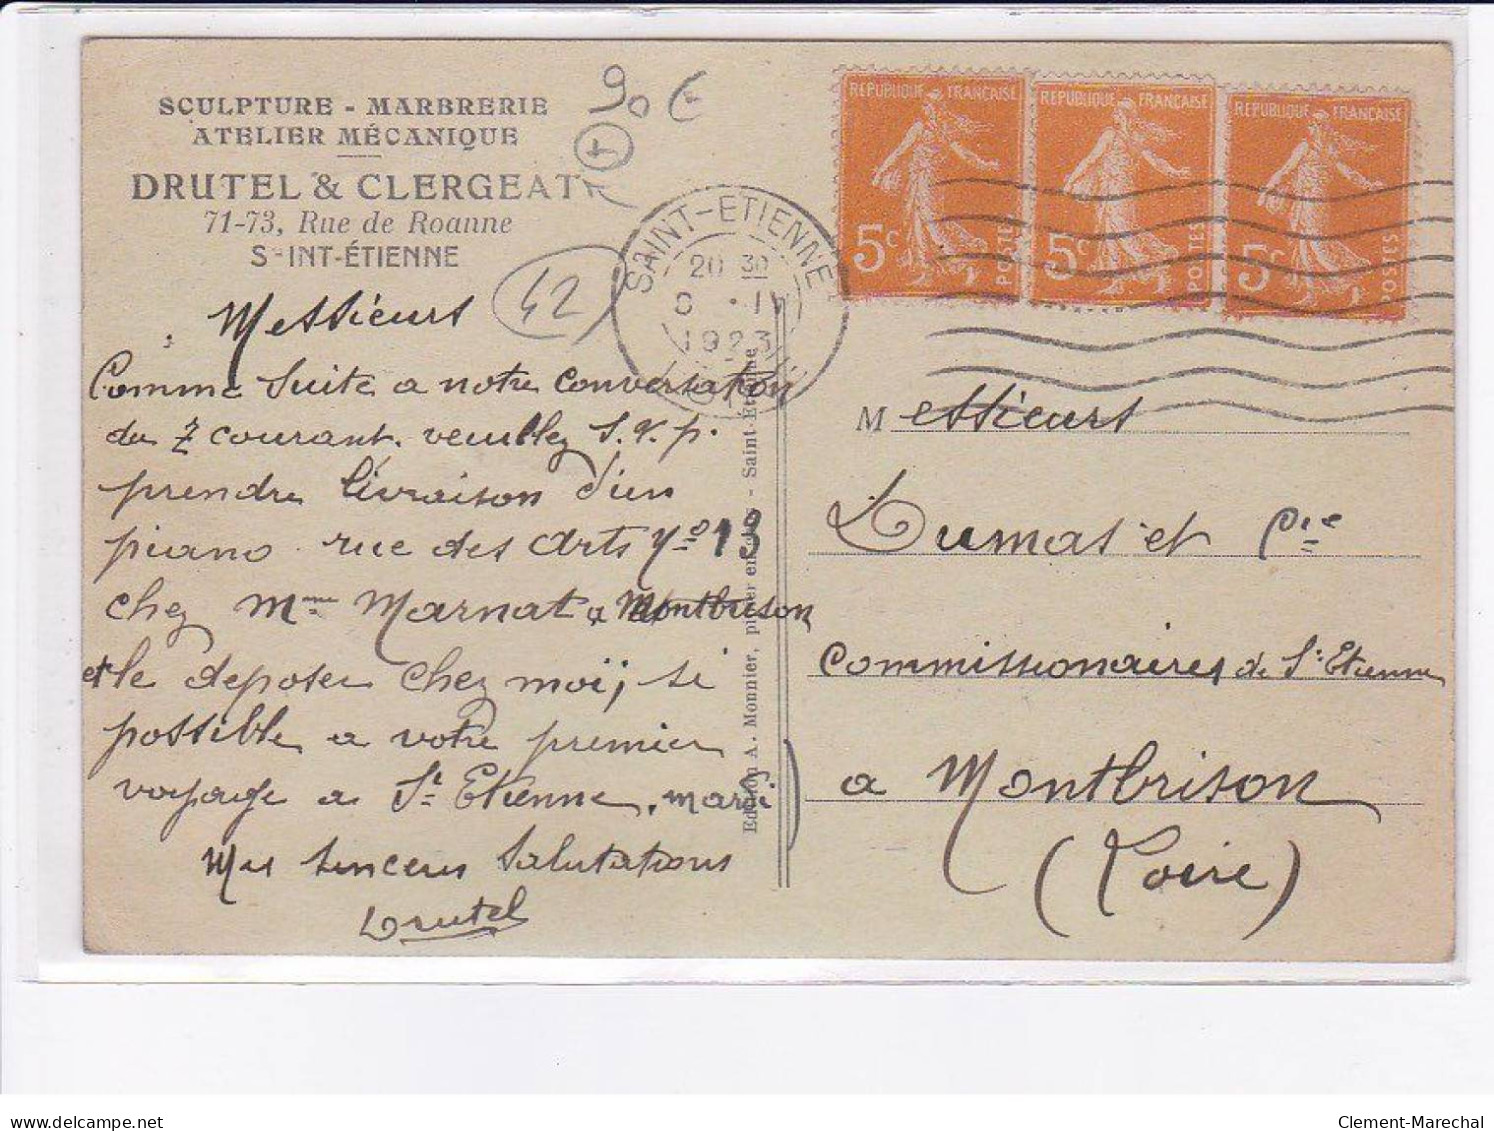 SCULPTURE - MARBRERIE
ATELIER MÉCANIQUE
DRUTEL & CLERGEAT
71-73, Rue de Roanne
S INT-ÉTIENNE
90 €
T
42
SAINT-ETIENNE
20 30
8 · IV
1923
LOIRE
REPUBLIQUE FRANÇAISE
5c
POSTES
REPUBLIQUE FRANÇAISE
5c
POSTES
REPUBLIQUE FRANÇAISE
5c
POSTES
Messieurs
Comme Suite a notre conversation
du 7 courant. veuillez S.V.p.
prendre livraison d'un
piano rue des Arts No 13
chez Mme Marnat a Montbrison
et le deposer chez moi, si
possible a votre premier
voyage a St Etienne, mardi
Mes sinceres Salutations
Drutel
Edition A. Monnier, - Saint-Étienne
Messieurs
Dumas et Cie
Commissionaires de St Etienne
a Montbrison
(Loire)
www.delcampe.net
Clement-Marechal